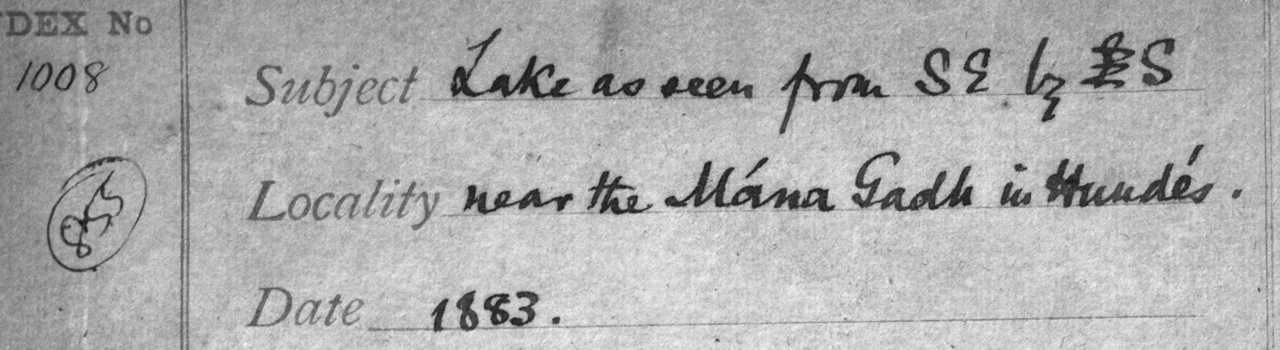 DEX No
1008
Subject Lake as seen from SE by S
Locality near the Mána Gadh in Hundés.
Date 1883.